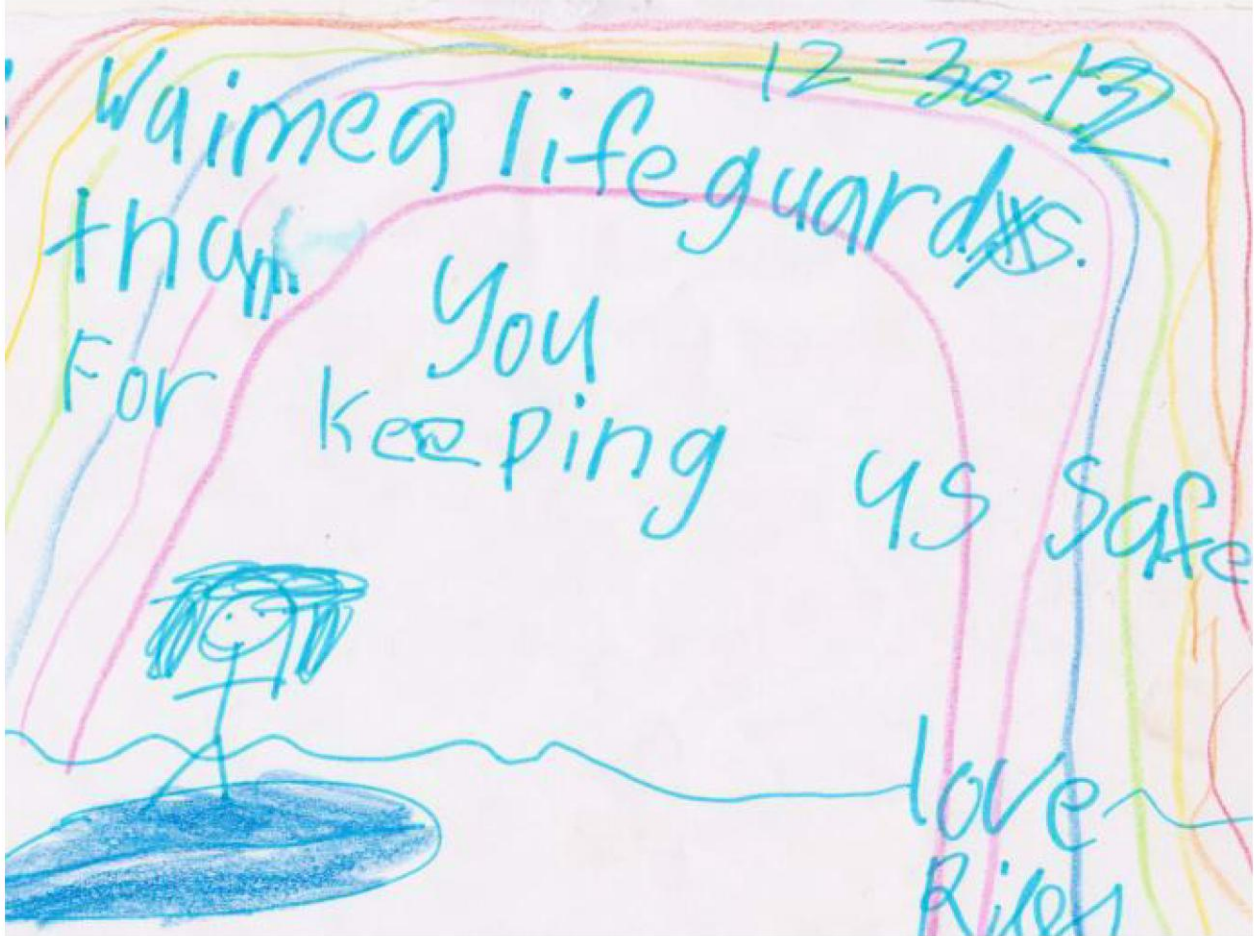 12-30-12
Waimea lifeguards.
than
you
For keeping us safe
love
Riley